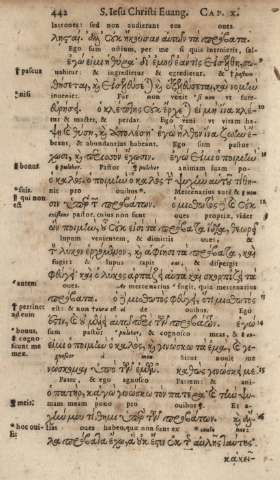 442 S. Iesu Christi Euang. CAP. X.
latrones: sed non audierunt eos oues.
λῃσταί. ἀλλ' οὐκ ἤκουσαν αὐτῶν τὰ πρόβατα.
Ego sum ostium, per me si quis introierit, sal-
ἐγώ εἰμι ἡ θύρα. δι' ἐμοῦ ἐάν τις εἰσέλθῃ, σω-
† pascua uabitur: & ingredietur & egredietur, &
θήσεται, καὶ εἰσελεύσεται, καὶ ἐξελεύσεται, καὶ νομὴν
† nisi inueniet. Fur non venit
εὑρήσει. ὁ κλέπτης οὐκ ἔρχεται εἰ μὴ ἵνα κλέ-
& mactet, & perdat. Ego veni vt vitam
ψῃ καὶ θύσῃ, καὶ ἀπολέσῃ. ἐγὼ ἦλθον ἵνα ζωὴν ἔ-
beant, & abundantius habeant. Ego sum pastor
χωσι, καὶ περισσὸν ἔχωσιν. ἐγώ εἰμι ὁ ποιμὴν
† bonus. Pastor animam suam
ὁ καλός. ὁ ποιμὴν ὁ καλὸς τὴν ψυχὴν αὐτοῦ τίθη-
pro ouibus. Mercenarius & non
† qui non est
σιν ὑπὲρ τῶν προβάτων. ὁ μισθωτὸς δὲ καὶ οὐκ
pastor, cuius non sunt oues propriæ, videt
ὢν ποιμήν, οὗ οὐκ εἰσὶ τὰ πρόβατα ἴδια, θεωρεῖ
lupum venientem, & dimittit oues, &
τὸν λύκον ἐρχόμενον, καὶ ἀφίησι τὰ πρόβατα, καὶ
fugit: & lupus rapit & dispergit
φεύγει· καὶ ὁ λύκος ἁρπάζει αὐτὰ καὶ σκορπίζει τὰ
† autem oues. mercenarius fugit, quia mercenarius
πρόβατα. ὁ δὲ μισθωτὸς φεύγει, ὅτι μισθωτός
est: & non de ouibus. Ego
ἐστι, καὶ οὐ μέλει αὐτῷ περὶ τῶν προβάτων. ἐγώ
† bonus, & cognosco meas, & co-
εἰμι ὁ ποιμὴν ὁ καλός, καὶ γινώσκω τὰ ἐμά, καὶ γι-
Sicut nouit me
νώσκομαι ὑπὸ τῶν ἐμῶν. καθὼς γινώσκει με
Pater, & ego agnosco Patrem: &
ὁ πατήρ, κἀγὼ γινώσκω τὸν πατέρα· καὶ τὴν
† meis: pono pro ouibus. Et
μου τίθημι ὑπὲρ τῶν προβάτων. καὶ
alias oues habeo quæ non sunt ex
πρόβατα ἔχω, ἃ οὐκ ἔστιν ἐκ τῆς αὐλῆς ταύτης.
κἀκεῖ-